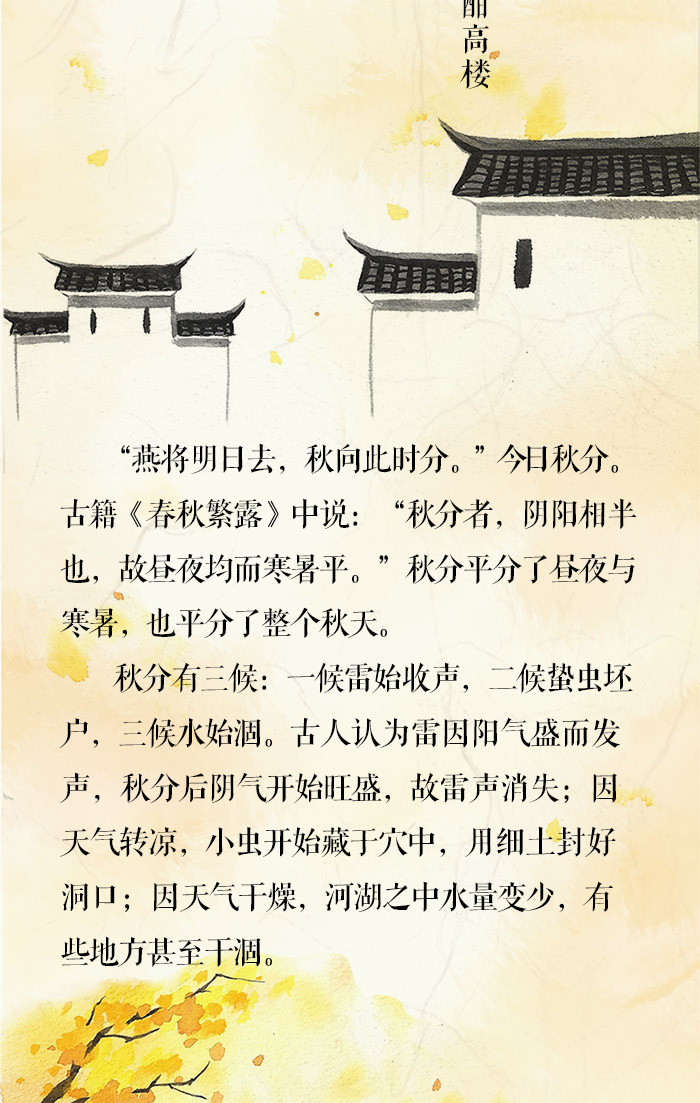 酣高楼
“燕将明日去，秋向此时分。”今日秋分。
古籍《春秋繁露》中说：“秋分者，阴阳相半
也，故昼夜均而寒暑平。”秋分平分了昼夜与
寒暑，也平分了整个秋天。
秋分有三候：一候雷始收声，二候蛰虫坯
户，三候水始涸。古人认为雷因阳气盛而发
声，秋分后阴气开始旺盛，故雷声消失；因
天气转凉，小虫开始藏于穴中，用细土封好
洞口；因天气干燥，河湖之中水量变少，有
些地方甚至干涸。